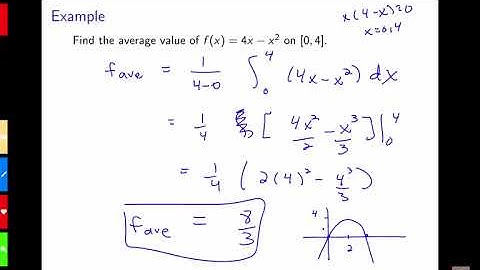 Example
x(4-x)=0
x=0,4
Find the average value of f(x) = 4x − x² on [0, 4].
f_ave = 1/(4-0) ∫₀⁴ (4x-x²) dx
= 1/4 [ 4x²/2 - x³/3 ]|₀⁴
= 1/4 ( 2(4)² - 4³/3 )
f_ave = 8/3
4
2